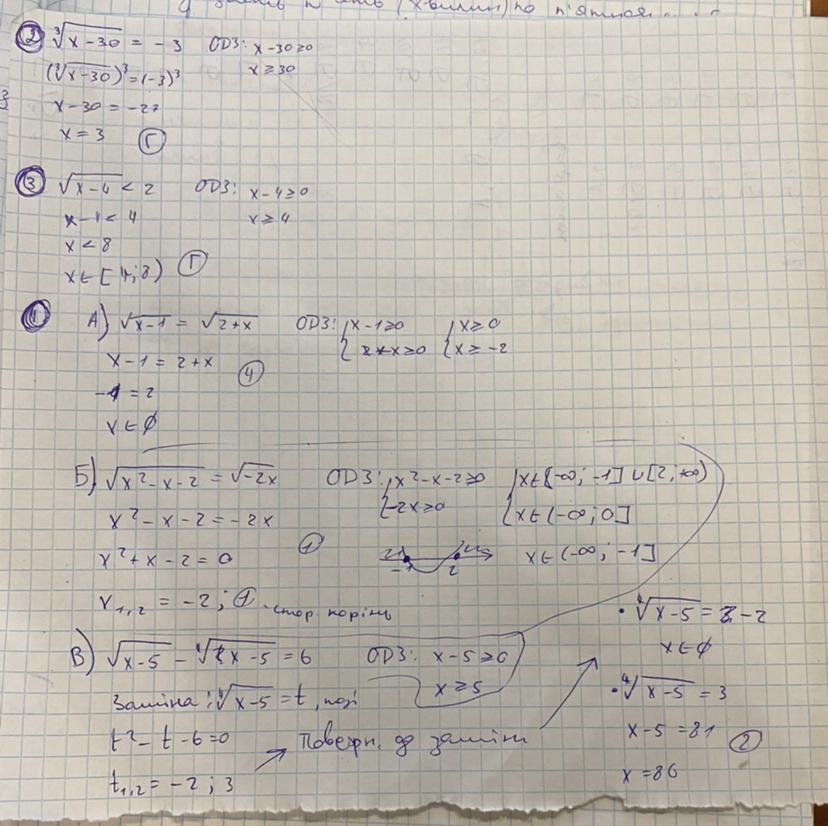 ② ∛(x-30) = -3 ОДЗ: x-30≥0
(∛(x-30))³=(-3)³ x≥30
x-30 = -27
x = 3 Г
③ √(x-4) < 2 ОДЗ: x-4≥0
x-4 < 4 x≥4
x < 8
x∈[4;8) Г
А) √(x-1) = √(2+x) ОДЗ: { x-1≥0 { x≥0
2+x≥0 x≥-2
x-1 = 2+x ④
-1 = 2
x∈∅
Б) √(x²-x-2) = √(-2x) ОДЗ: { x²-x-2≥0 { x∈(-∞; -1]∪[2; +∞)
-2x≥0 x∈(-∞; 0]
x²-x-2 = -2x
x²+x-2=0 ① -1 2 x∈(-∞; -1]
x₁,₂ = -2; ① -стор. корінь
В) √(x-5) - ∜(x-5) = 6 ОДЗ: x-5≥0
x≥5
Заміна: ∜(x-5) = t,
t²-t-6=0 Поверн. до заміни
t₁,₂ = -2; 3
• ∜(x-5) = -2
x∈∅
• ∜(x-5) = 3
x-5 = 81 ②
x = 86